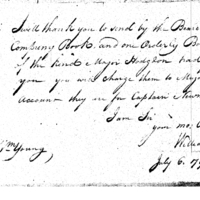 I will thank you to send by the Bearer
Company Book, and one Orderly Bo
of the kind Major Hodgdon had
you you will charge them to Majo
account they are for Captain
I am Sir
your mo. O
Willia
Wm Young,
July 6. 179